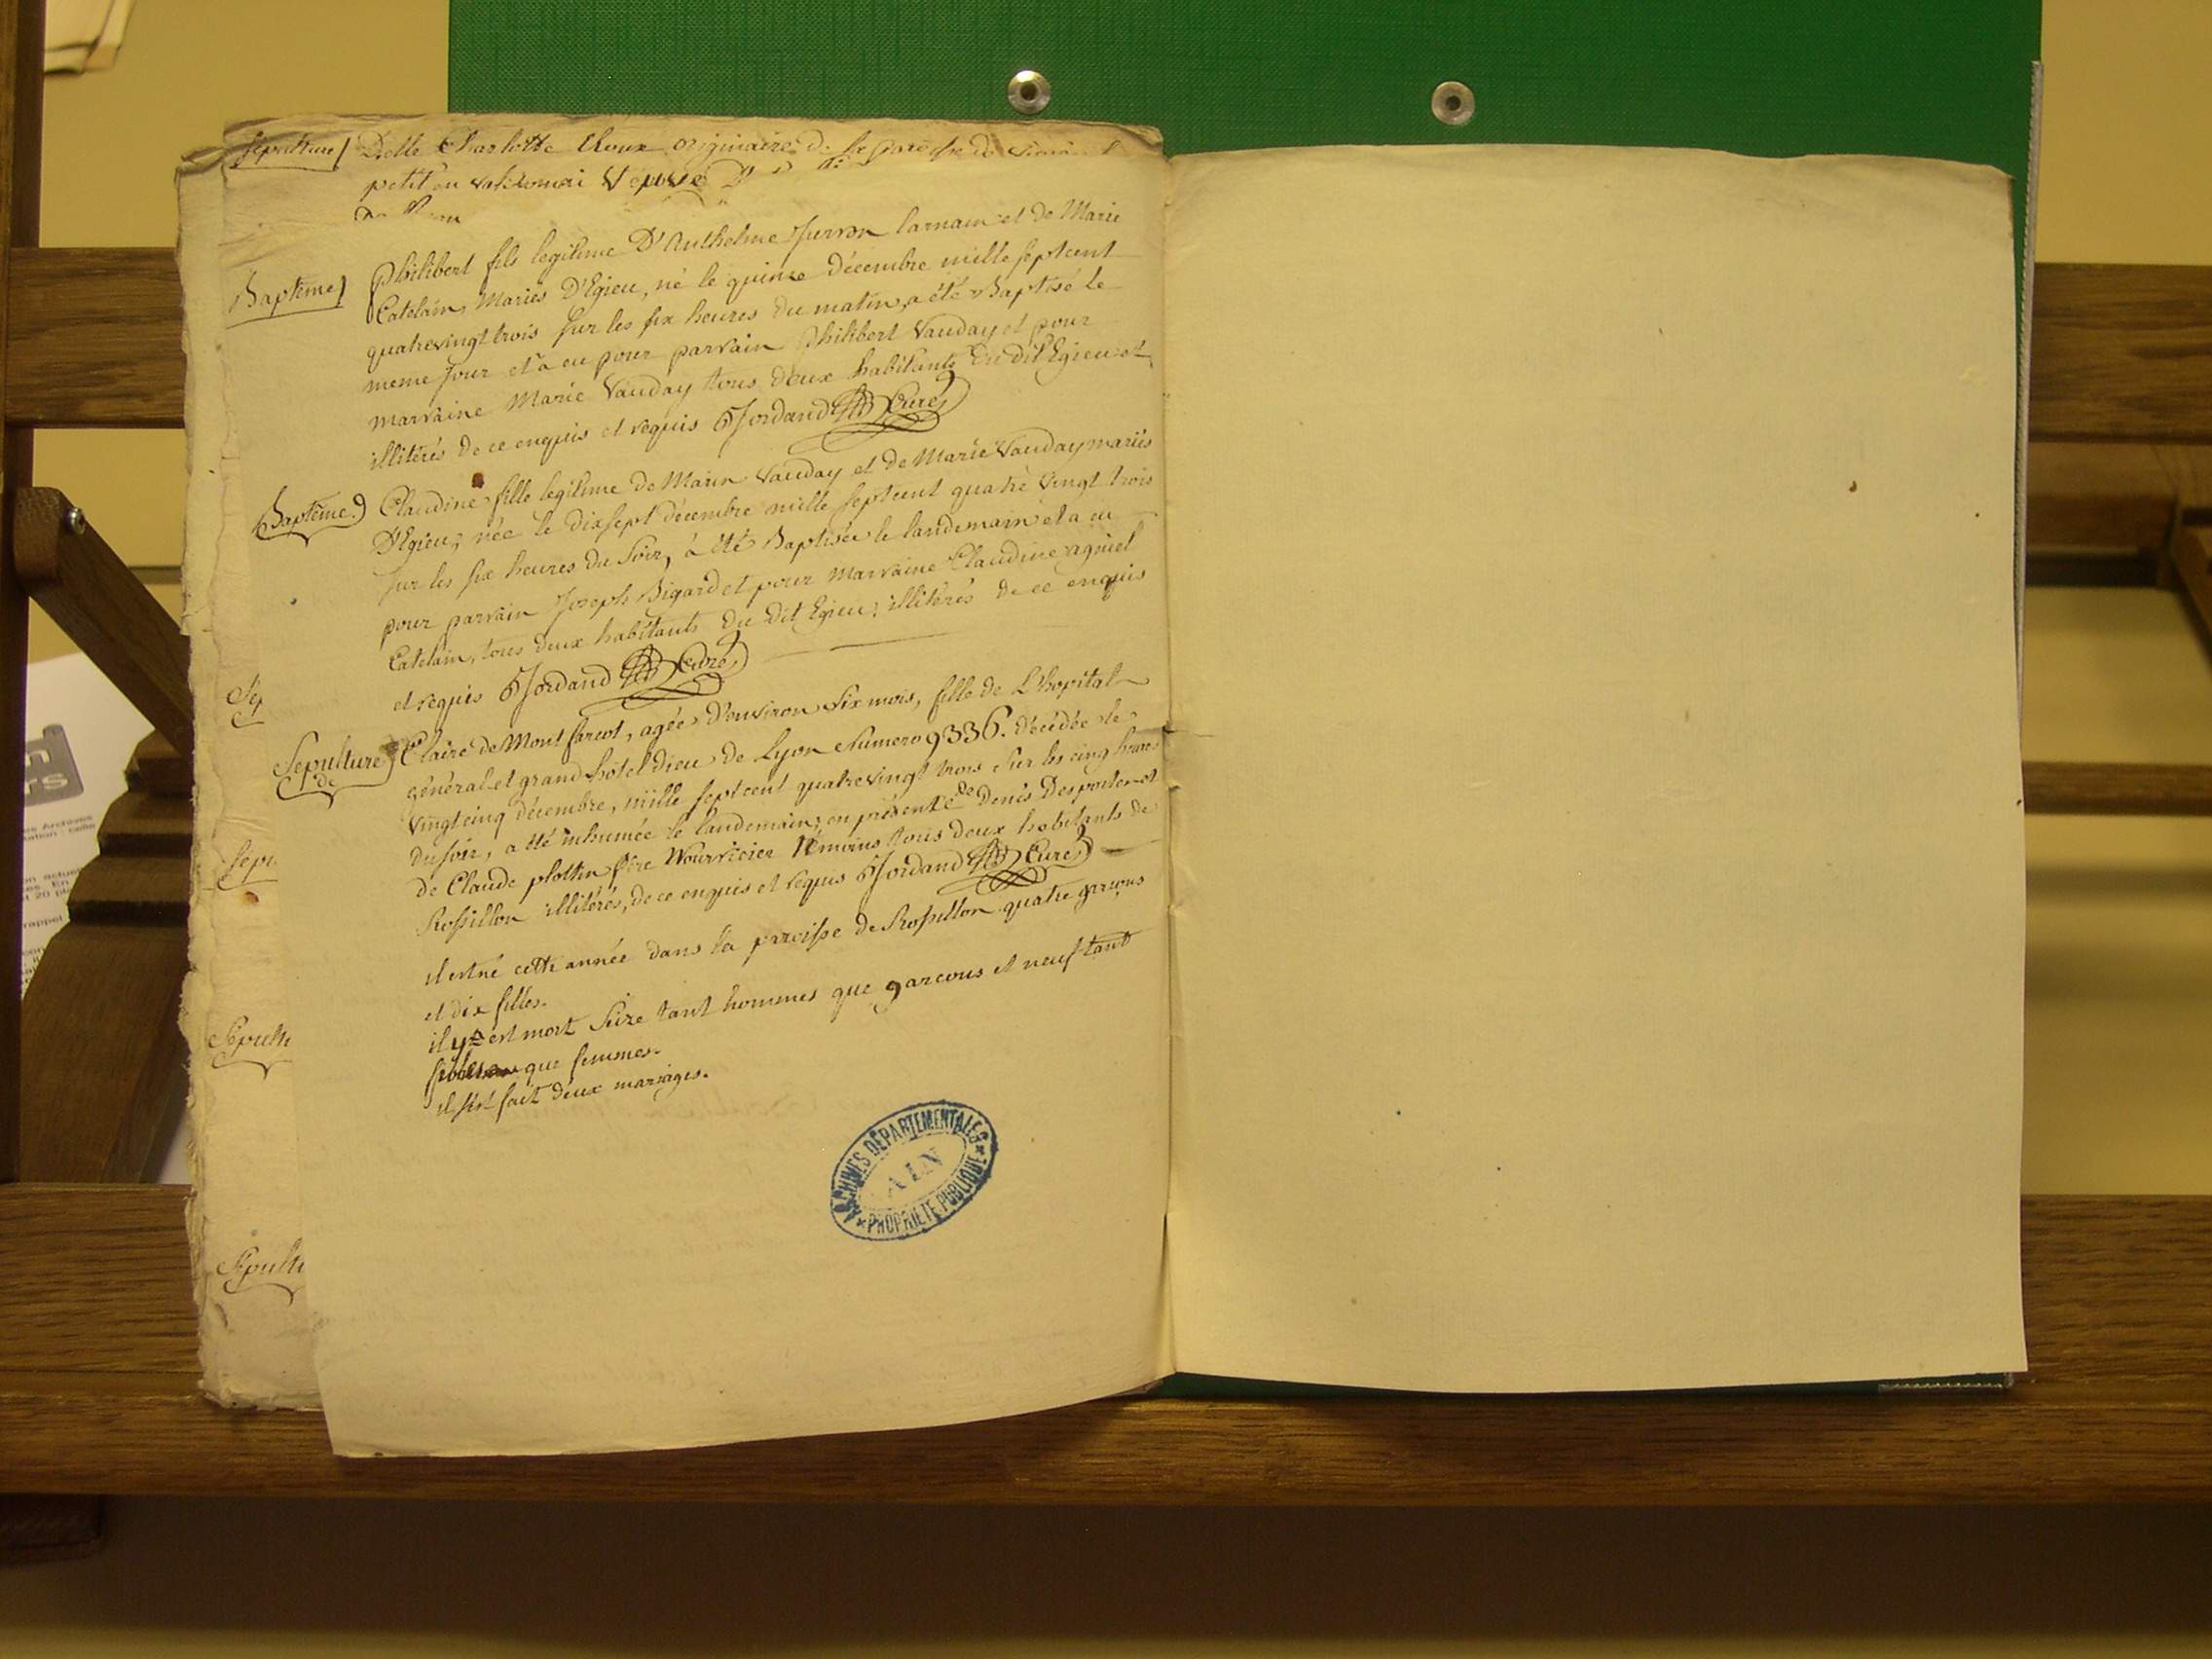 Sepulture Delle Charlotte Roux originaire de la paroisse de
petit en valromai
Baptême Philibert fils legitime D'Anthelme Jurron larnain et de Marie
Catelain, Mariés D'Egieu, né le quinze décembre mille sept cent
quatrevingt trois sur les six heures du matin, a été Baptisé le
meme Jour et a eu pour parrain Philibert Vauday et pour
marraine Marie Vauday tous deux habitants du dit Egieu et
illitérés de ce enquis et requis Jordand Curé
Baptême Claudine fille legitime de Marin Vauday et de Marie Vauday mariés
D'Egieu, née le dixsept décembre mille septcent quatre vingt trois
sur les six heures du Soir, a été Baptisée le landemain et a eu
pour parrain Joseph Bigard et pour marraine Claudine agniel
Catelain, tous deux habitants du dit Egieu, illitérés de ce enquis
et requis Jordand Curé
Sep
Sepulture de Claire de Montfarcot, agée d'environ Six mois, fille de L'hopital
général et grand hôtel dieu de Lyon Numero 9336. décédée le
vingtcinq décembre, mille sept cent quatrevingt trois sur les cinq heures
du soir, a été inhumée le landemain, en présence de Denis Desportes et
de Claude plottin père Nourricier témoins tous deux habitants de
Rossillon illitérés, de ce enquis et requis Jordand Curé
Sepu
il est né cette année dans la paroisse de Rossillon quatre garçons
et dix filles.
il y est mort Seize tant hommes que garcons et neuf tant
que femmes.
il s'est fait deux mariages.
Sepult
Sepult
ARCHIVES DÉPARTEMENTALES
AIN
PROPRIÉTÉ PUBLIQUE